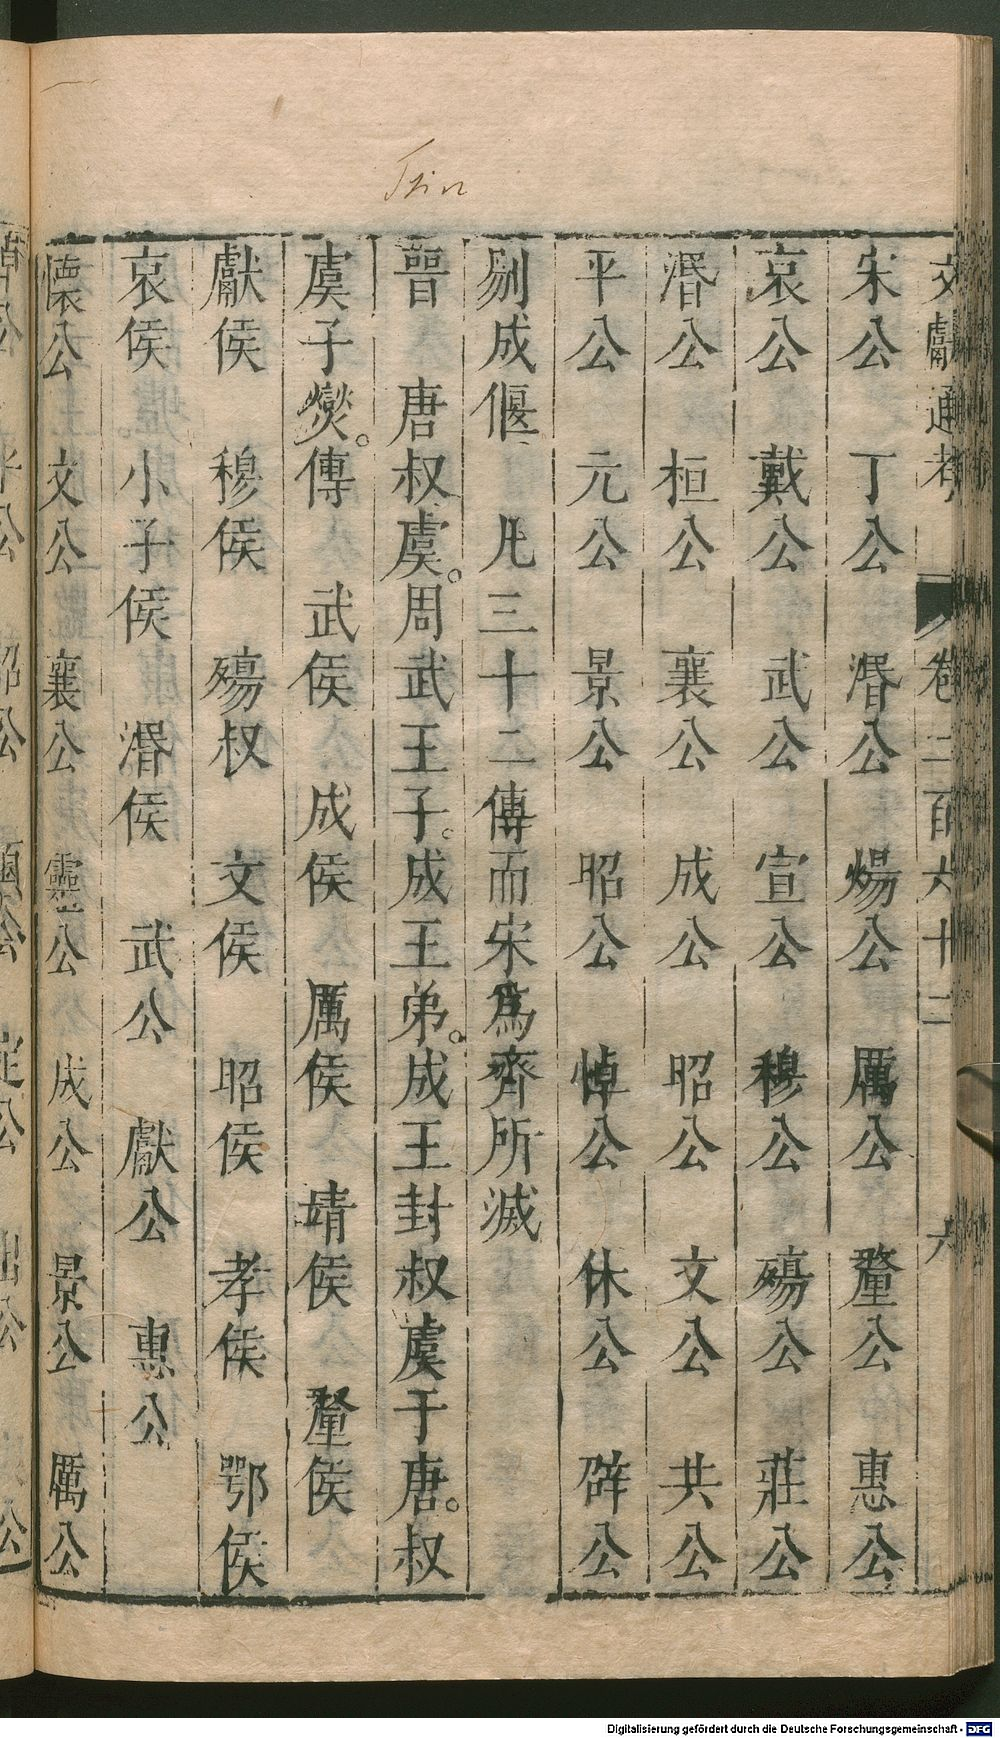 Tsin
文獻通考 卷二百六十二 六
宋公 丁公 湣公 煬公 厲公 釐公 惠公
哀公 戴公 武公 宣公 穆公 殤公 莊公
湣公 桓公 襄公 成公 昭公 文公 共公
平公 元公 景公 昭公 悼公 休公 辟公
剔成偃 凡三十二傳而宋爲齊所滅
晉 唐叔虞。周武王子。成王弟。成王封叔虞于唐。叔
虞子燮。傳 武侯 成侯 厲侯 靖侯 釐侯
獻侯 穆侯 殤叔 文侯 昭侯 孝侯 鄂侯
哀侯 小子侯 湣侯 武公 獻公 惠公
懷公 文公 襄公 靈公 成公 景公 厲公
Digitalisierung gefördert durch die Deutsche Forschungsgemeinschaft - DFG